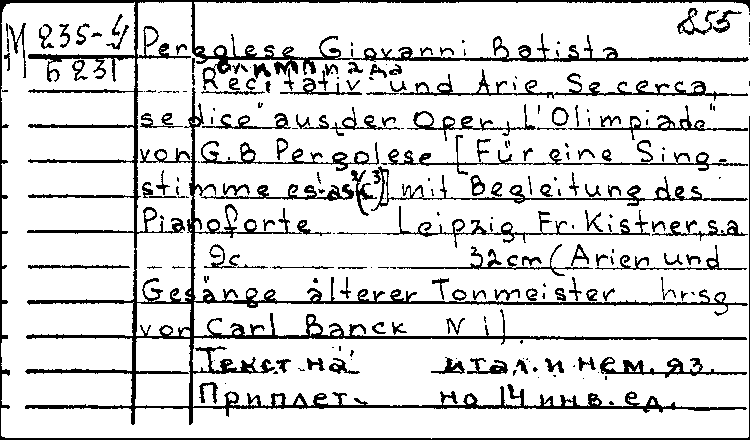 855
М 235-4 Pergolese Giovanni Batista
6231 олимпиада
Recitativ und Arie „Se cerca,
se dice" aus der Oper „L'Olimpiade"
von G.B Pergolese [Für eine Sing-
stimme es¹-as²(c³)] mit Begleitung des
Pianoforte Leipzig, Fr. Kistner, s.a
9c. 32cm (Arien und
Gesänge älterer Tonmeister hrsg
von Carl Banck N 1)
Текст на итал. и нем. яз.
Приплет. на 14 инв. ед.